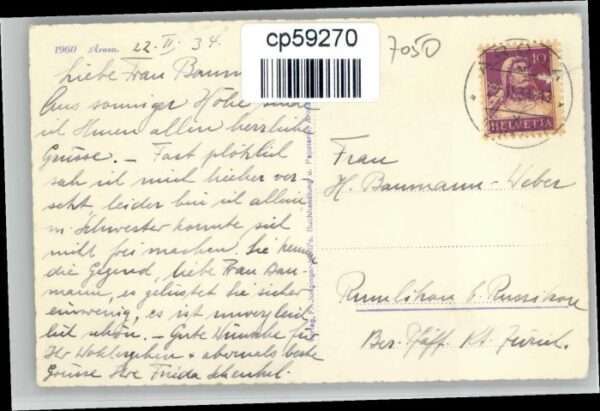 cp59270
7050
1960 Arosa. 22. II. 34.
Liebe Frau Baum
Aus sonniger Höhe sende
ich Ihnen allen herzliche
Grüsse. – Fast plötzlich
sah ich mich hieher ver-
setzt leider bin ich allein
m. Schwester konnte sich
nicht frei machen. Sie kennen
die Gegend, liebe Frau Bau-
mann, es gelüstet Sie sicher
ein wenig, es ist unvergleich
lich schön. – Gute Wünsche für
Ihr Wohlergehen + abermals beste
Grüsse Ihre Frida Schenkel.
10
HELVETIA
Frau
H. Baumann-Weber
Rumlikon b. Russikon
Bez. Pfäff. Kt. Zürich.